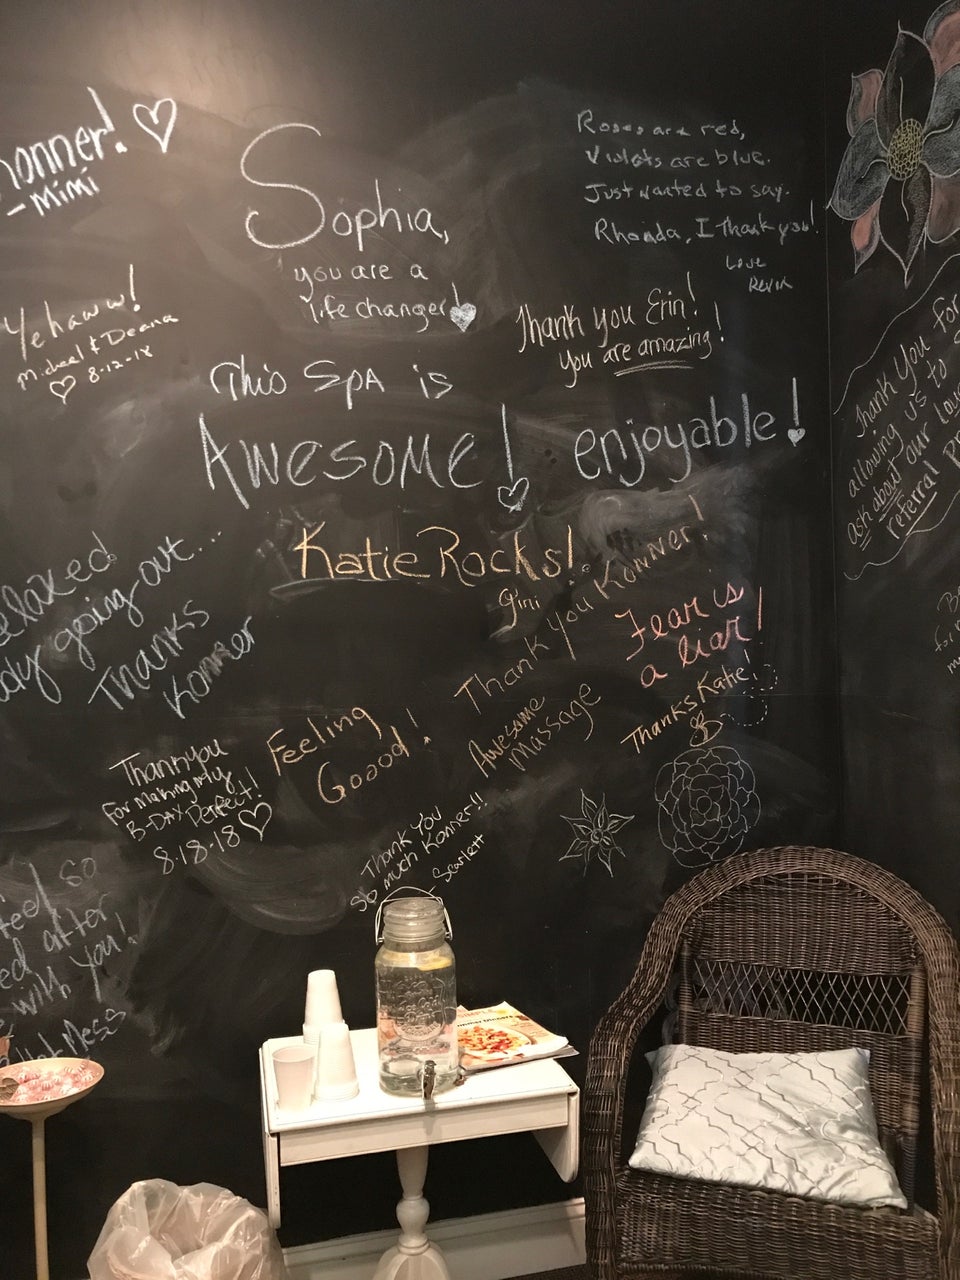 onner!
- Mimi
Sophia,
you are a
life changer!
Roses are red,
Violets are blue.
Just wanted to say.
Rhonda, I Thank you!
Love
Yehaww!
Micheal & Deana
8-12-18
Thank you Erin!
You are amazing!
This SPA is
AWESOME! enjoyable!
Thank You for
allowing
us to
ask about our
referral
Katie Rocks!
Gini
Thank you Konner!
Fear is
a liar!
Thanks Katie!
elaxed
dy going out...
Thanks
Konner
Feeling
Goood!
Awesome
Massage
Thank you
For making My
B-DAY Perfect!
8-18-18
Thank You
So much Konner!!
Scarlett
feel so
ed after
with you!
Mess